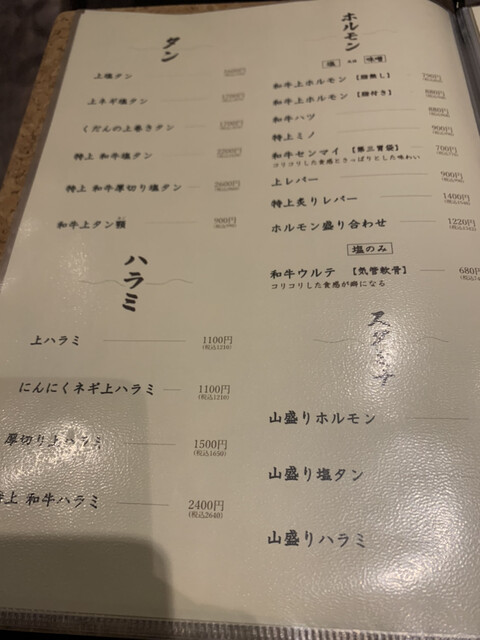 タン
上塩タン
上ネギ塩タン
くだんの上巻きタン
特上 和牛塩タン
特上 和牛厚切り塩タン 2600円
和牛上タン 900円
ハラミ
上ハラミ 1100円
(税込1210)
にんにくネギ上ハラミ 1100円
(税込1210)
厚切り上ハラミ 1500円
(税込1650)
上 和牛ハラミ 2400円
(税込2640)
ホルモン
塩 味噌
和牛上ホルモン 【脂無し】 790円
和牛上ホルモン 【脂付き】 880円
和牛ハツ 880円
特上ミノ 900円
和牛センマイ 【第三胃袋】 700円
コリコリした食感とさっぱりとした味わい
上レバー 900円
特上炙りレバー 1400円
ホルモン盛り合わせ 1220円
塩のみ
和牛ウルテ 【気管軟骨】 680
コリコリした食感が癖になる
スタミナ
山盛りホルモン
山盛り塩タン
山盛りハラミ